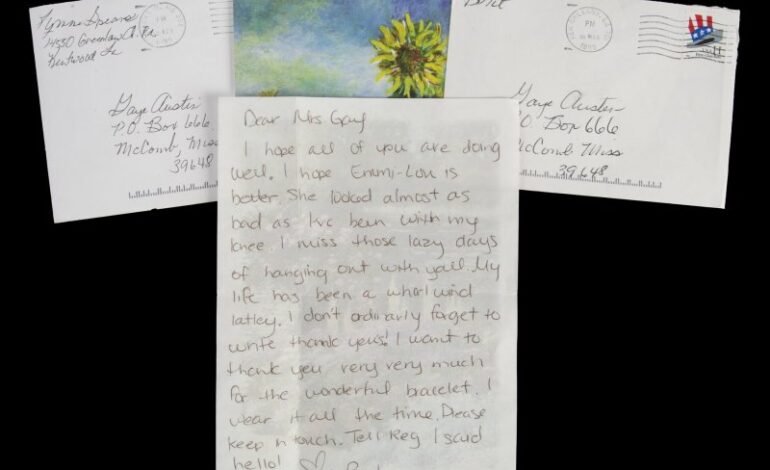 Lynne Spears
Kentwood La
PM
Gaye Austin
P.O. Box 666
McComb, Miss
39648
PM
1999
Gaye Austin
P.O. Box 666
McComb Miss
39648
Dear Mrs Gayf
I hope all of you are doing
well. I hope Emmi-Lou is
better. She looked almost as
bad as I've been with my
knee. I miss those lazy days
of hanging out with yall. My
life has been a whirlwind
latley. I don't ordinarly forget to
write thank yous! I want to
thank you very very much
for the wonderful bracelet. I
wear it all the time. Please
keep in touch. Tell Reg I said
hello! ♡